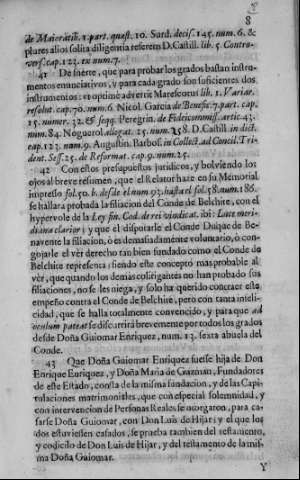 8
de Maioratib. 1. part. quæst. 10. Surd. decis. 145. num. 6. &
plures alios solita diligentia referem D. Castill. lib. 5. Contro-
vers. cap. 123. ex num. 7.
41 De suerte, que para probar los grados bastan instru-
mentos enunciativos, y para cada grado son suficientes dos
instrumentos: vt optimè advertit Marescotus lib. 1. Variar.
resolut. cap. 70. num. 6. Nicol. Garcia de Benefic. 7. part. cap.
15. numer. 32. & seqq. Peregrin. de Fideicommiss. artic. 43.
num. 84. Noguerol allegat. 25. num. 258. D. Castill. in dict.
cap. 123. num. 9. Augustin. Barbos. in Collect. ad Concil. Tri-
dent. Sess. 25. de Reformat. cap. 9. num. 25.
42 Con estos presupuestos juridicos, y bolviendo los
ojos al breve resumen, que el Relator haze en su Memorial
impresso fol. 50. b. desde el num. 93. hasta el fol. 58. num. 186.
se hallarà probada la filiacion del Conde de Belchite, con el
hypervole de la Ley fin. Cod. de rei vindicat. ibi: Luce meri-
diana clarior; y que el disputarle el Conde Duque de Be-
navente la filiacion, ò es demasiadamente voluntario, ò con-
gojarle el vèr derecho tan bien fundado como el Conde de
Belchite representa; siendo este concepto mas probable al
vèr, que quando los demàs colitigantes no han probado sus
filiaciones, no se les niega, y solo ha querido contraer este
empeño contra el Conde de Belchite, pero con tanta infeli-
cidad, que se halla totalmente convencido, y para que ad
oculum pateat se discurrirà brevemente por todos los grados
desde Doña Guiomar Enriquez, num. 13. sexta abuela del
Conde.
43 Que Doña Guiomar Enriquez fuesse hija de Don
Enrique Enriquez, y Doña Maria de Guzmàn, Fundadores
de este Estado, consta de la misma fundacion, y de las Capi-
tulaciones matrimoniales, que con especial solemnidad, y
con intervencion de Personas Reales se otorgaron, para ca-
sarse Doña Guiomar, con Don Luis de Hijar; y el que los
dos estuviessen casados, se prueba tambien del testamento,
y codicilo de Don Luis de Hijar, y del testamento de la mis-
ma Doña Guiomar.
Y